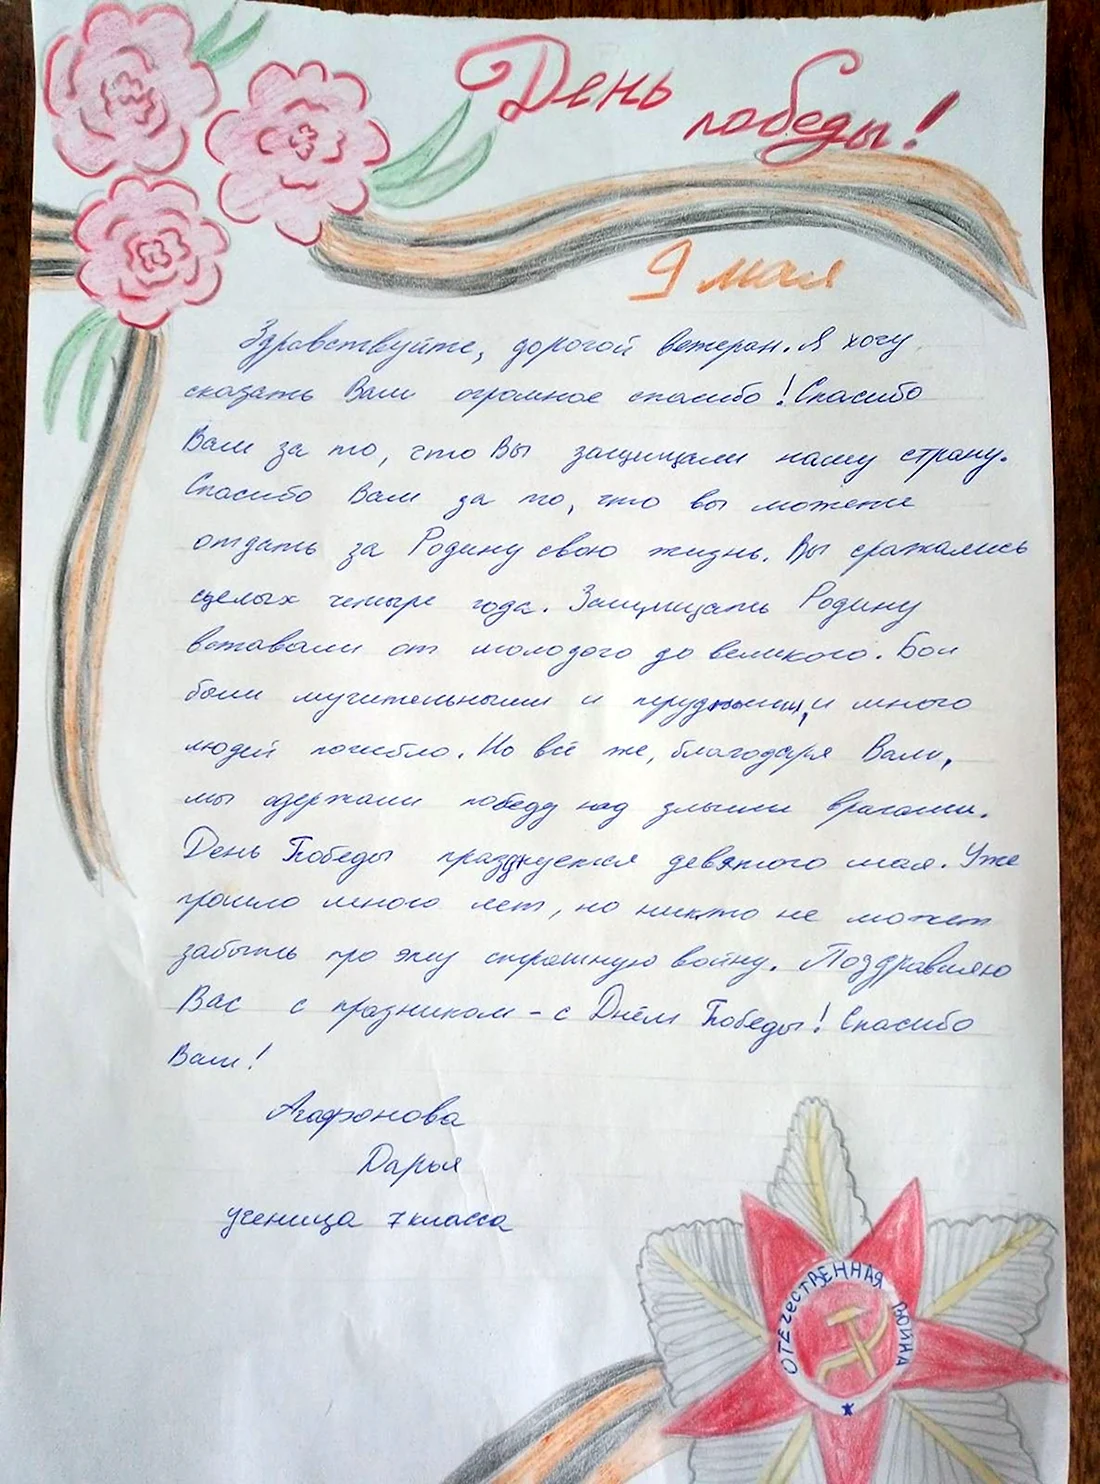 День
победы!
9 мая
Здравствуйте, дорогой ветеран. Я хочу
сказать Вам огромное спасибо! Спасибо
Вам за то, что Вы защищали нашу страну.
Спасибо Вам за то, что вы можете
отдать за Родину свою жизнь. Вы сражались
сцелых четыре года. Защищать Родину
вставали от молодого до великого. Бои
были мучительными и трудными, и много
людей погибло. Но всё же, благодаря Вам,
мы одержали победу над злыми врагами.
День Победы празднуется девятого мая. Уже
прошло много лет, но никто не может
забыть про эту страшную войну. Поздравляю
Вас с празником - с Днём Победы! Спасибо
Вам!
Агафонова
Дарья
ученица 7 класса
ОТЕЧЕСТВЕННАЯ ВОЙНА